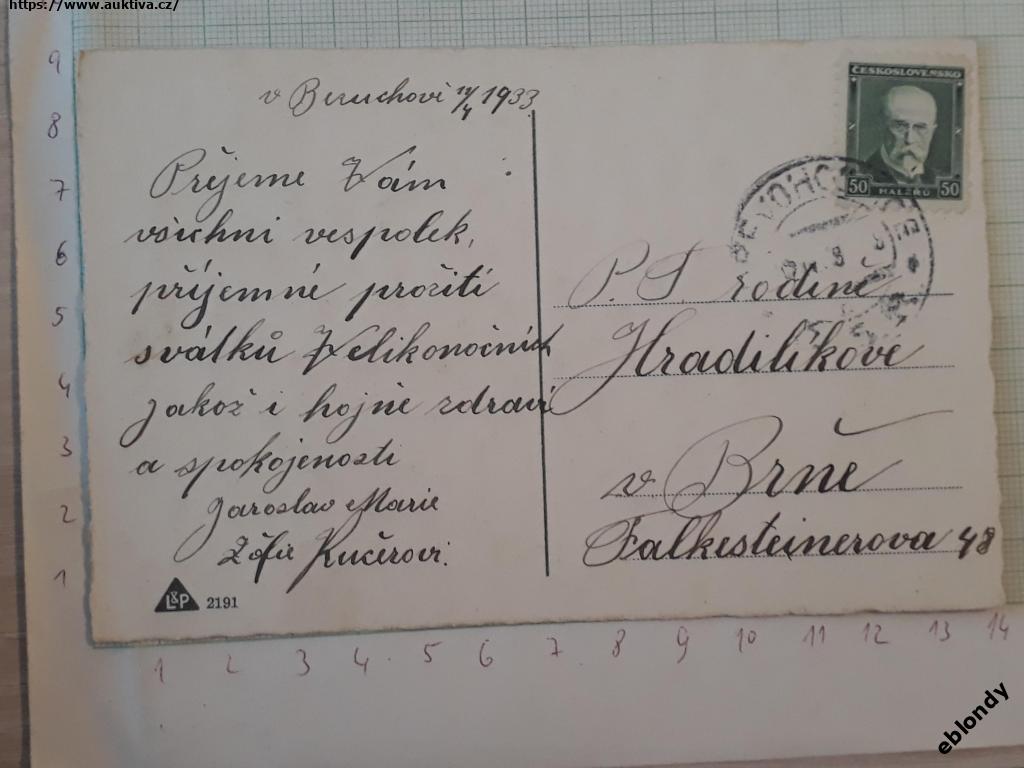 https://www.auktiva.cz/
v Beruchovi 14/4 1933
Přejeme Vám
všichni vespolek,
příjemné prožití
svátků Velikonočních
jakož i hojně zdraví
a spokojenosti
Jaroslav Marie
Žofie Kučerovi.
L&P 2191
ČESKOSLOVENSKO
50 HALÉŘŮ 50
P. T. rodině
Hradilíkově
v Brně
Falkesteinerova 48
9
8
7
6
5
4
3
2
1
1 2 3 4 5 6 7 8 9 10 11 12 13 14
eblondy